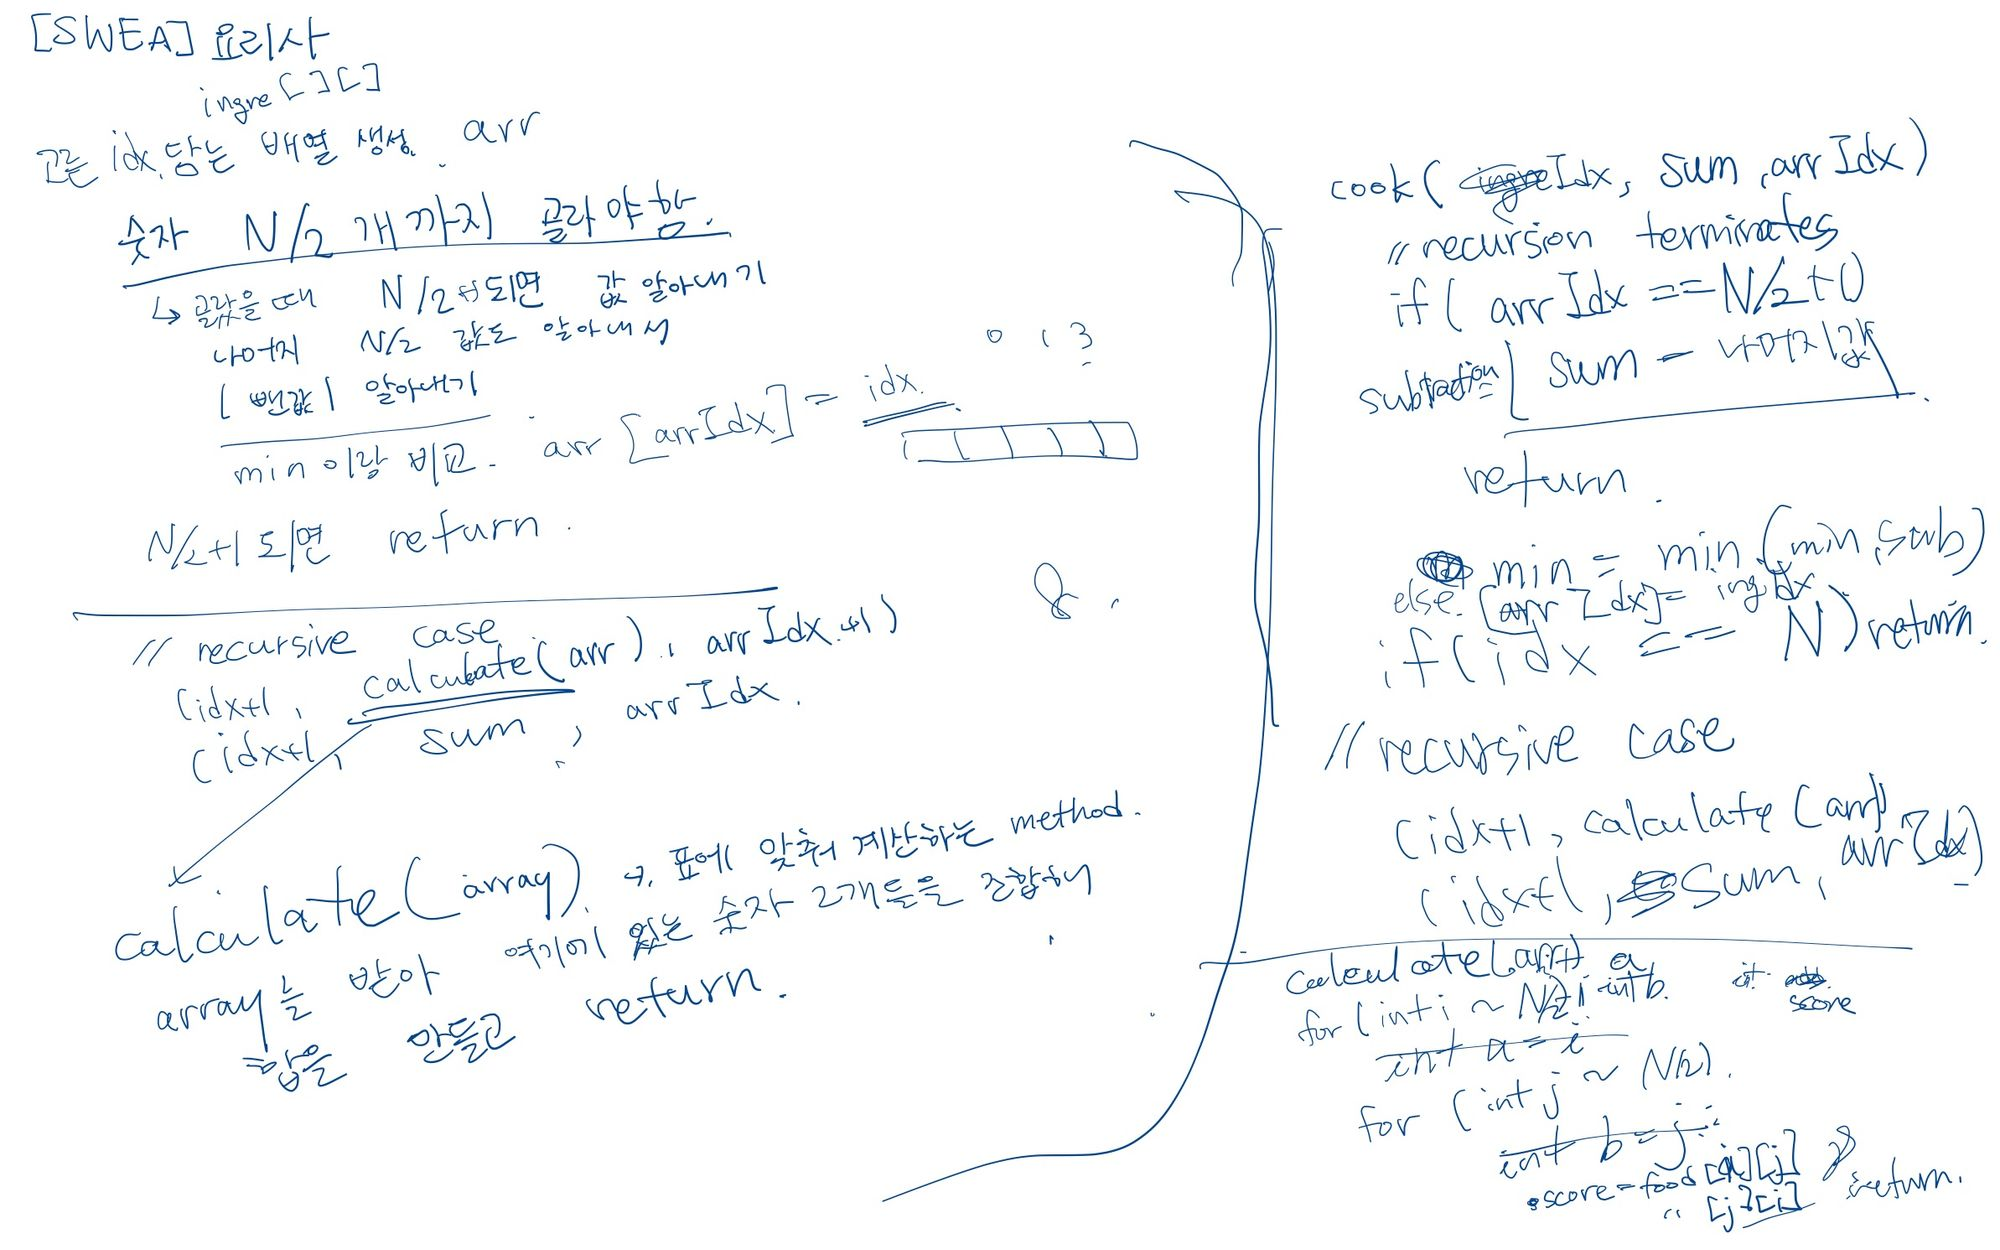 [SWEA] 요리사
ingre[][]
고른 idx 담는 배열 생성. arr
숫자 N/2 개까지 골라야함.
↳ 골랐을 때 N/2 되면 값 알아내기
나머지 N/2 값도 알아내서
| 뺀값 | 알아내기
min 이랑 비교.
arr [arrIdx] = idx.
0 1 3
N/2+1 되면 return.
// recursive case
(idx+1, calculate(arr), arrIdx+1)
(idx+1, sum, arrIdx.
8.
calculate(array) → 표에 맞춰 계산하는 method.
array를 받아 여기에 있는 숫자 2개들을 조합해
합을 만들고 return.
cook( Idx, sum, arrIdx)
// recursion terminates
if( arrIdx == N/2+1)
subtraction | sum - 나머지값 |
return.
min = min(min, sub)
else. arr[Idx] = ingIdx
if(idx == N) return.
// recursive case
(idx+1, calculate(arr), arrIdx)
(idx+1, sum,
calculate(arr) a
int b. int score
for(int i ~ N/2+1
int a = i
for (int j ~ N/2).
int b = j;
score = food[i][j]
" [j][i]
return.